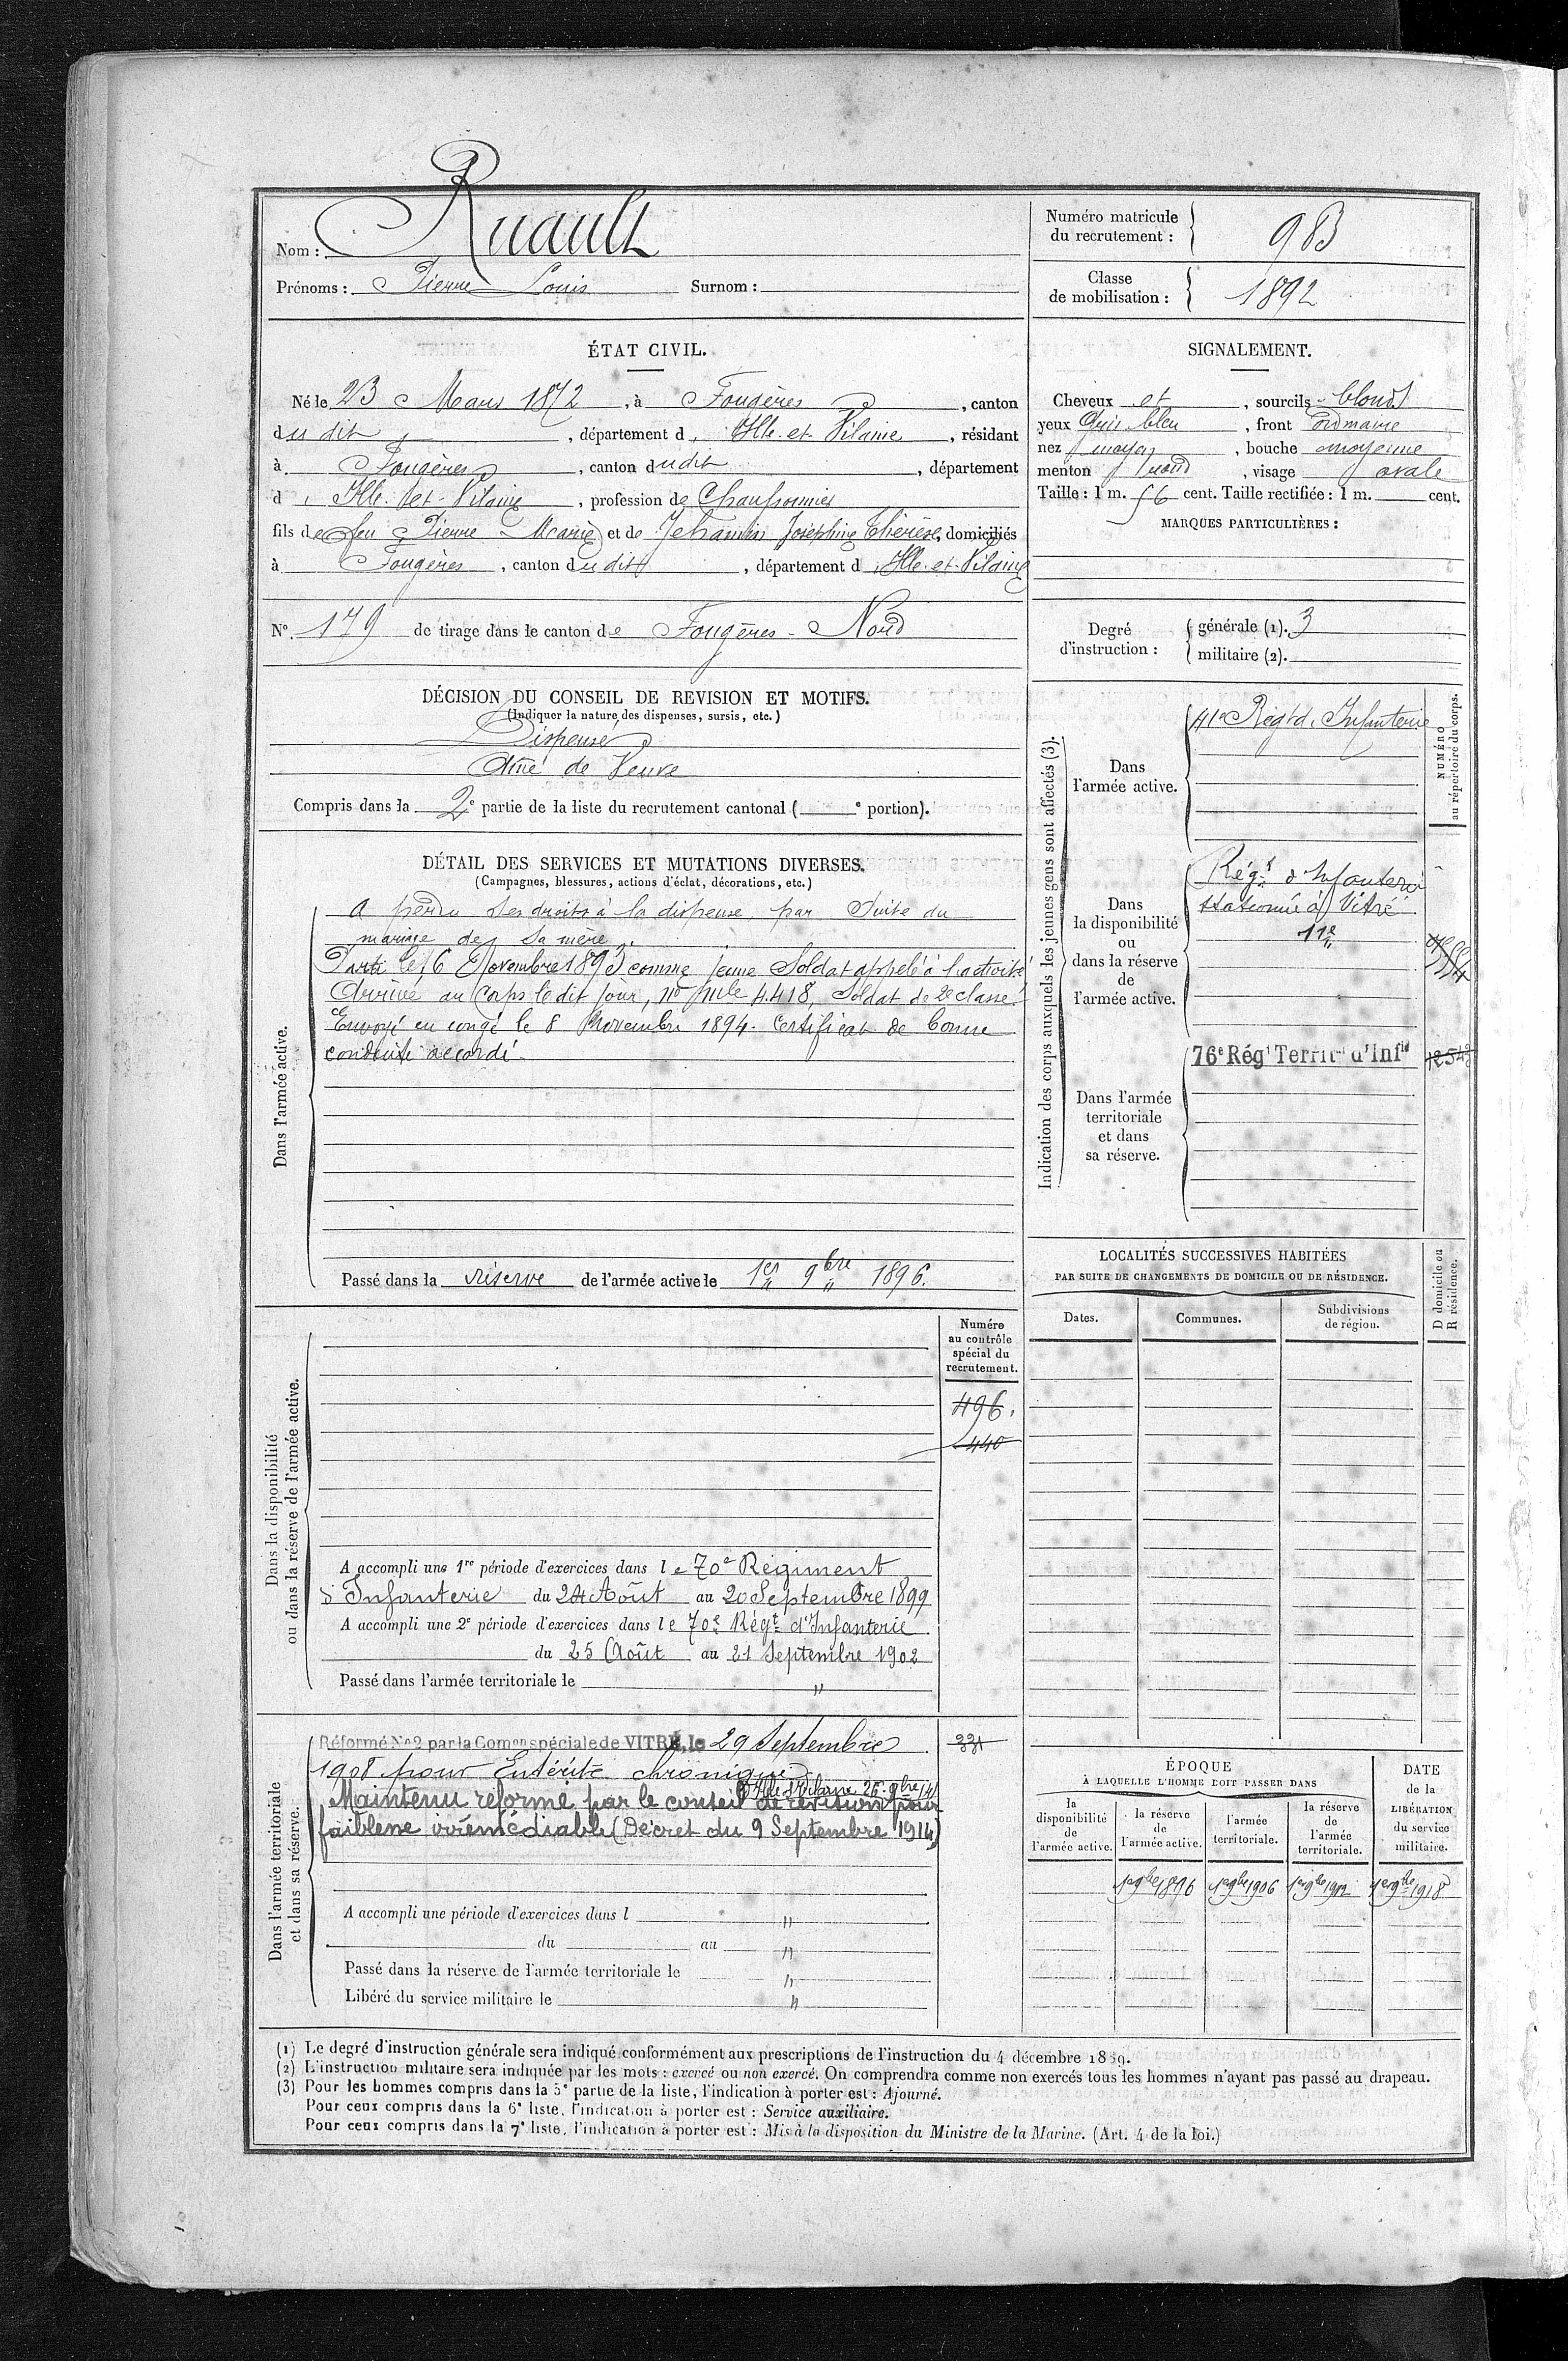 Nom : Ruault
Prénoms : Pierre Louis Surnom :
Numéro matricule du recrutement : 983
Classe de mobilisation : 1892
ÉTAT CIVIL.
Né le 23 Mars 1872, à Fougères, canton
du dit, département d'Ille-et-Vilaine, résidant
à Fougères, canton dudit, département
d'Ille-et-Vilaine, profession de Chaussonnier
fils de feu Pierre Marie et de Jehannin Joséphine Thérèse, domiciliés
à Fougères, canton dudit, département d'Ille-et-Vilaine
N° 179 de tirage dans le canton de Fougères-Nord
SIGNALEMENT.
Cheveux et, sourcils blonds
yeux Gris bleu, front ordinaire
nez moyen, bouche moyenne
menton rond, visage ovale
Taille : 1 m. 56 cent. Taille rectifiée : 1 m. cent.
MARQUES PARTICULIÈRES :
Degré d'instruction :
générale (1). 3
militaire (2).
DÉCISION DU CONSEIL DE REVISION ET MOTIFS.
(Indiquer la nature des dispenses, sursis, etc.)
Dispensé
Aîné de Veuve
Compris dans la 2e partie de la liste du recrutement cantonal ( e portion).
DÉTAIL DES SERVICES ET MUTATIONS DIVERSES.
(Campagnes, blessures, actions d'éclat, décorations, etc.)
Dans l'armée active.
A perdu ses droits à la dispense, par suite du
mariage de sa mère.
Parti le 16 Novembre 1893 comme jeune Soldat appelé à l'activité
Arrivé au Corps le dit jour, no mle 4.418, Soldat de 2e classe.
Envoyé en congé le 8 Novembre 1894. Certificat de bonne
conduite accordé.
Passé dans la réserve de l'armée active le 1er 9bre 1896.
Indication des corps auxquels les jeunes gens sont affectés (3).
NUMÉRO au répertoire du corps.
Dans l'armée active.
41e Régt d'Infanterie
Dans la disponibilité ou dans la réserve de l'armée active.
Régt d'Infanterie
stationné à Vitré
11e
Dans l'armée territoriale et dans sa réserve.
76e Régt Territ d'Infie
LOCALITÉS SUCCESSIVES HABITÉES
PAR SUITE DE CHANGEMENTS DE DOMICILE OU DE RÉSIDENCE.
Dates. Communes. Subdivisions de région.
D domicile ou R résidence.
Dans la disponibilité ou dans la réserve de l'armée active.
Numéro au contrôle spécial du recrutement.
496.
440
A accompli une 1re période d'exercices dans le 70e Régiment
d'Infanterie du 24 Août au 20 Septembre 1899
A accompli une 2e période d'exercices dans le 70e Régt d'Infanterie
du 25 Août au 21 Septembre 1902
Passé dans l'armée territoriale le "
Dans l'armée territoriale et dans sa réserve.
Réformé No 2 par la Comon spéciale de VITRÉ, le 29 Septembre
1908 pour Entérite chronique
d'Ille & Vilaine 26 9bre 14
Maintenu réformé par le conseil de révision pour
faiblesse irrémédiable (Décret du 9 Septembre 1914)
331
A accompli une période d'exercices dans l "
du au "
Passé dans la réserve de l'armée territoriale le "
Libéré du service militaire le "
ÉPOQUE
À LAQUELLE L'HOMME DOIT PASSER DANS
la disponibilité de l'armée active.
la réserve de l'armée active.
l'armée territoriale.
la réserve de l'armée territoriale.
DATE de la LIBÉRATION du service militaire.
1er 9bre 1896 1er 9bre 1906 1er 9bre 1912 1er 9bre 1918
(1) Le degré d'instruction générale sera indiqué conformément aux prescriptions de l'instruction du 4 décembre 1889.
(2) L'instruction militaire sera indiquée par les mots : exercé ou non exercé. On comprendra comme non exercés tous les hommes n'ayant pas passé au drapeau.
(3) Pour les hommes compris dans la 5e partie de la liste, l'indication à porter est : Ajourné.
Pour ceux compris dans la 6e liste, l'indication à porter est : Service auxiliaire.
Pour ceux compris dans la 7e liste, l'indication à porter est : Mis à la disposition du Ministre de la Marine. (Art. 4 de la loi.)